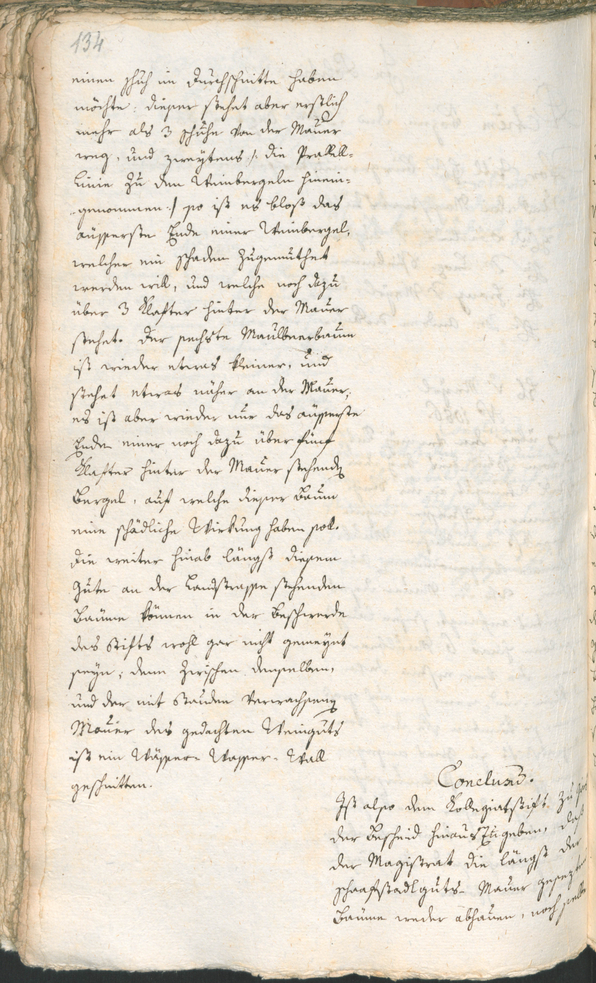 134
einen Schuh im Durchschnitte haben
möchte: dieser stehet aber erstlich
mehr als 3 Schuhe von der Mauer
weg, und zweytens /: die Prallel-
Linie zu den Weinbergeln hinein-
genommen :/ so ist es bloß das
äusserste Ende einer Weinbergel,
welcher ein Schaden zugemuthet
werden will, und welche noch dazu
über 3 Klafter hinter der Mauer
stehet. Der sechste Maulbeerbaum
ist wieder etwas kleiner, und
stehet etwas näher an der Mauer,
es ist aber wieder nur das äusserste
Ende einer noch dazu über fünf
Klafter hinter der Mauer stehenden
Bergel, auf welche dieser Baum
eine schädliche Wirkung haben soll.
Die weiter hinab längst diesem
Gute an der Landstrasse stehenden
Bäume können in der Beschwerde
des Stifts wohl gar nicht gemeynt
seyn, denn zwischen denselben,
und der mit Stauden verwachsenen
Mauer des gedachten Weinguts
ist ein Wässer-Wasser-Wall
geschnitten.
Conclusum.
Ist also dem Kolegiatstift zu
der Bescheid hinauszugeben, daß
der Magistrat die längst der
Schaafstadlguts-Mauer gesezten
Bäume weder abhauen, noch